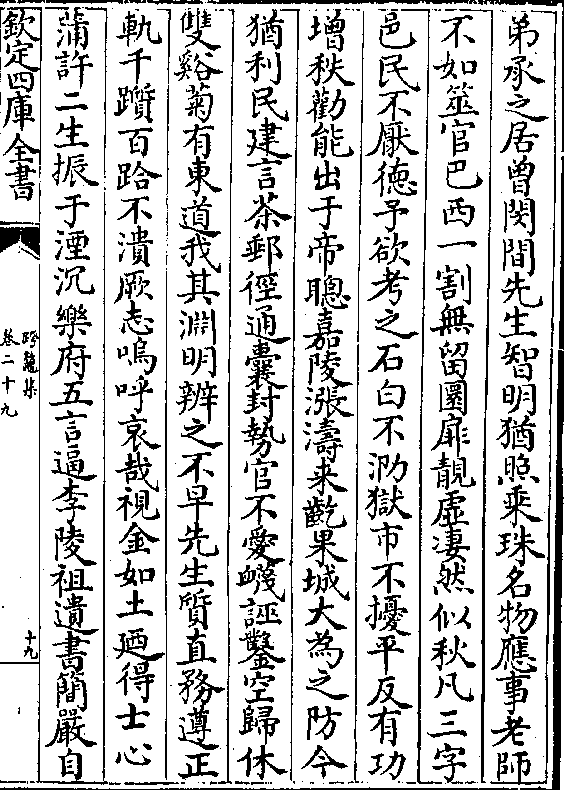 弟承之居曾閔間先生智明猶照乘珠名物應事老師
不如筮官巴西一割無留圜扉靚虛凄然似秋凡三字
邑民不厭德予欲考之石白不泐獄市不擾平反有功
增秩勸能出于帝聰嘉陵漲濤来齕果城大為之防今
猶利民建言茶郵徑通囊封勢官不愛衊誣鑿空歸休
雙谿菊有東道我其淵明辨之不早先生質直務遵正
軌千躓百跲不潰厥志嗚呼哀哉視金如土廼得士心
蒲許二生振于湮沉樂府五言逼李陵祖遺書簡嚴自
欽定四庫全書
跨鼇集
卷二十九
十九